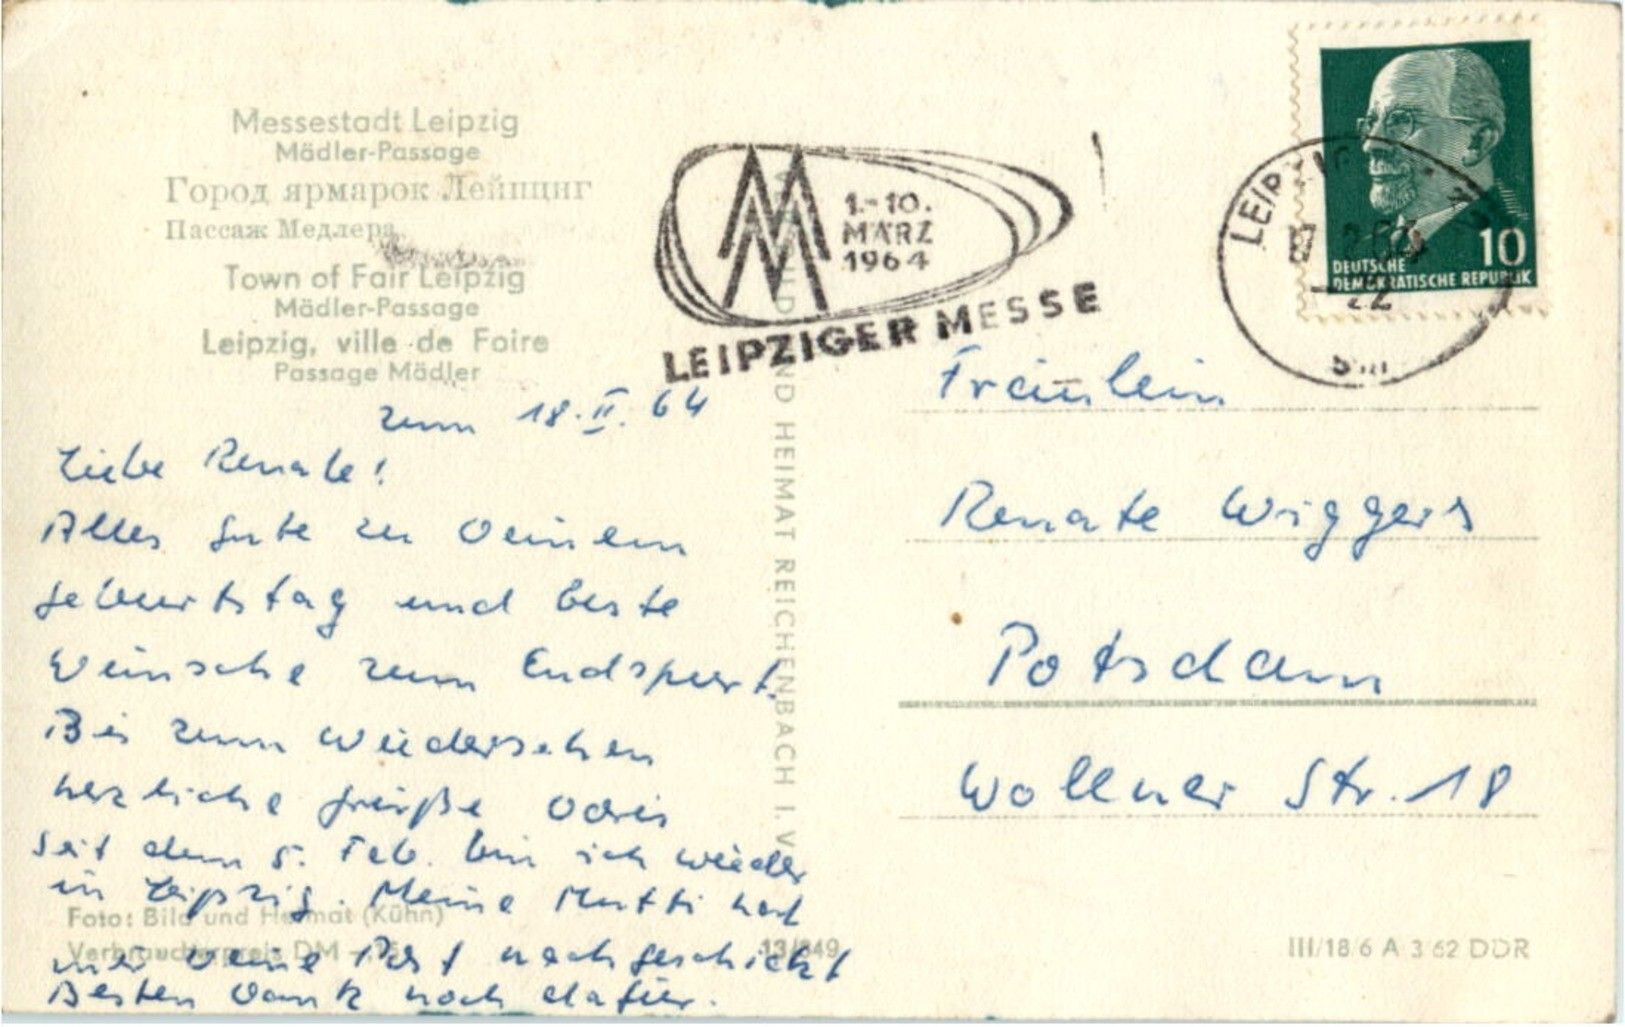 Messestadt Leipzig
Mädler-Passage
Город ярмарок Лейпциг
Пассаж Медлера
Town of Fair Leipzig
Mädler-Passage
Leipzig, ville de Foire
Passage Mädler
1.-10.
MÄRZ
1964
LEIPZIGER MESSE
10
DEUTSCHE
DEMOKRATISCHE REPUBLIK
LEIPZIG
22
zum 18.II.64
Liebe Renate!
Alles gute zu Deinem
geburtstag und beste
Wünsche zum Endspurt.
Bis zum Wiedersehen
herzliche grüße Doris
Seit dem 5. Feb. bin ich wieder
in Leipzig. Meine Mutti hat
mir Deine Post nachgeschickt
Besten Dank noch dafür.
Foto: Bild und Heimat (Kühn)
Verbraucherpreis DM
13/849
UND HEIMAT REICHENBACH I. V.
Fräulein
Renate Wiggers
Potsdam
Wollner Str. 18
III/18 6 A 3 62 DDR